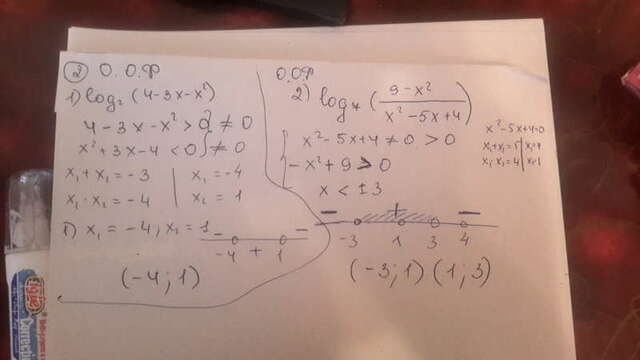 ② О.О.Ф
1) log₂ (4-3x-x²)
4-3x-x²>0 ≠0
x²+3x-4<0 ≠0
x₁+x₂=-3 | x₁=-4
x₁·x₂=-4 | x₂=1
1) x₁=-4; x₂=1
- + -
-4 1
(-4;1)
О.О.Ф
2) log₄ (9-x² / x²-5x+4)
x²-5x+4≠0 >0
-x²+9>0
x<±3
x²-5x+4=0
x₁+x₂=5 | x₁=4
x₁·x₂=4 | x₂=1
- + -
-3 1 3 4
(-3;1) (1;3)